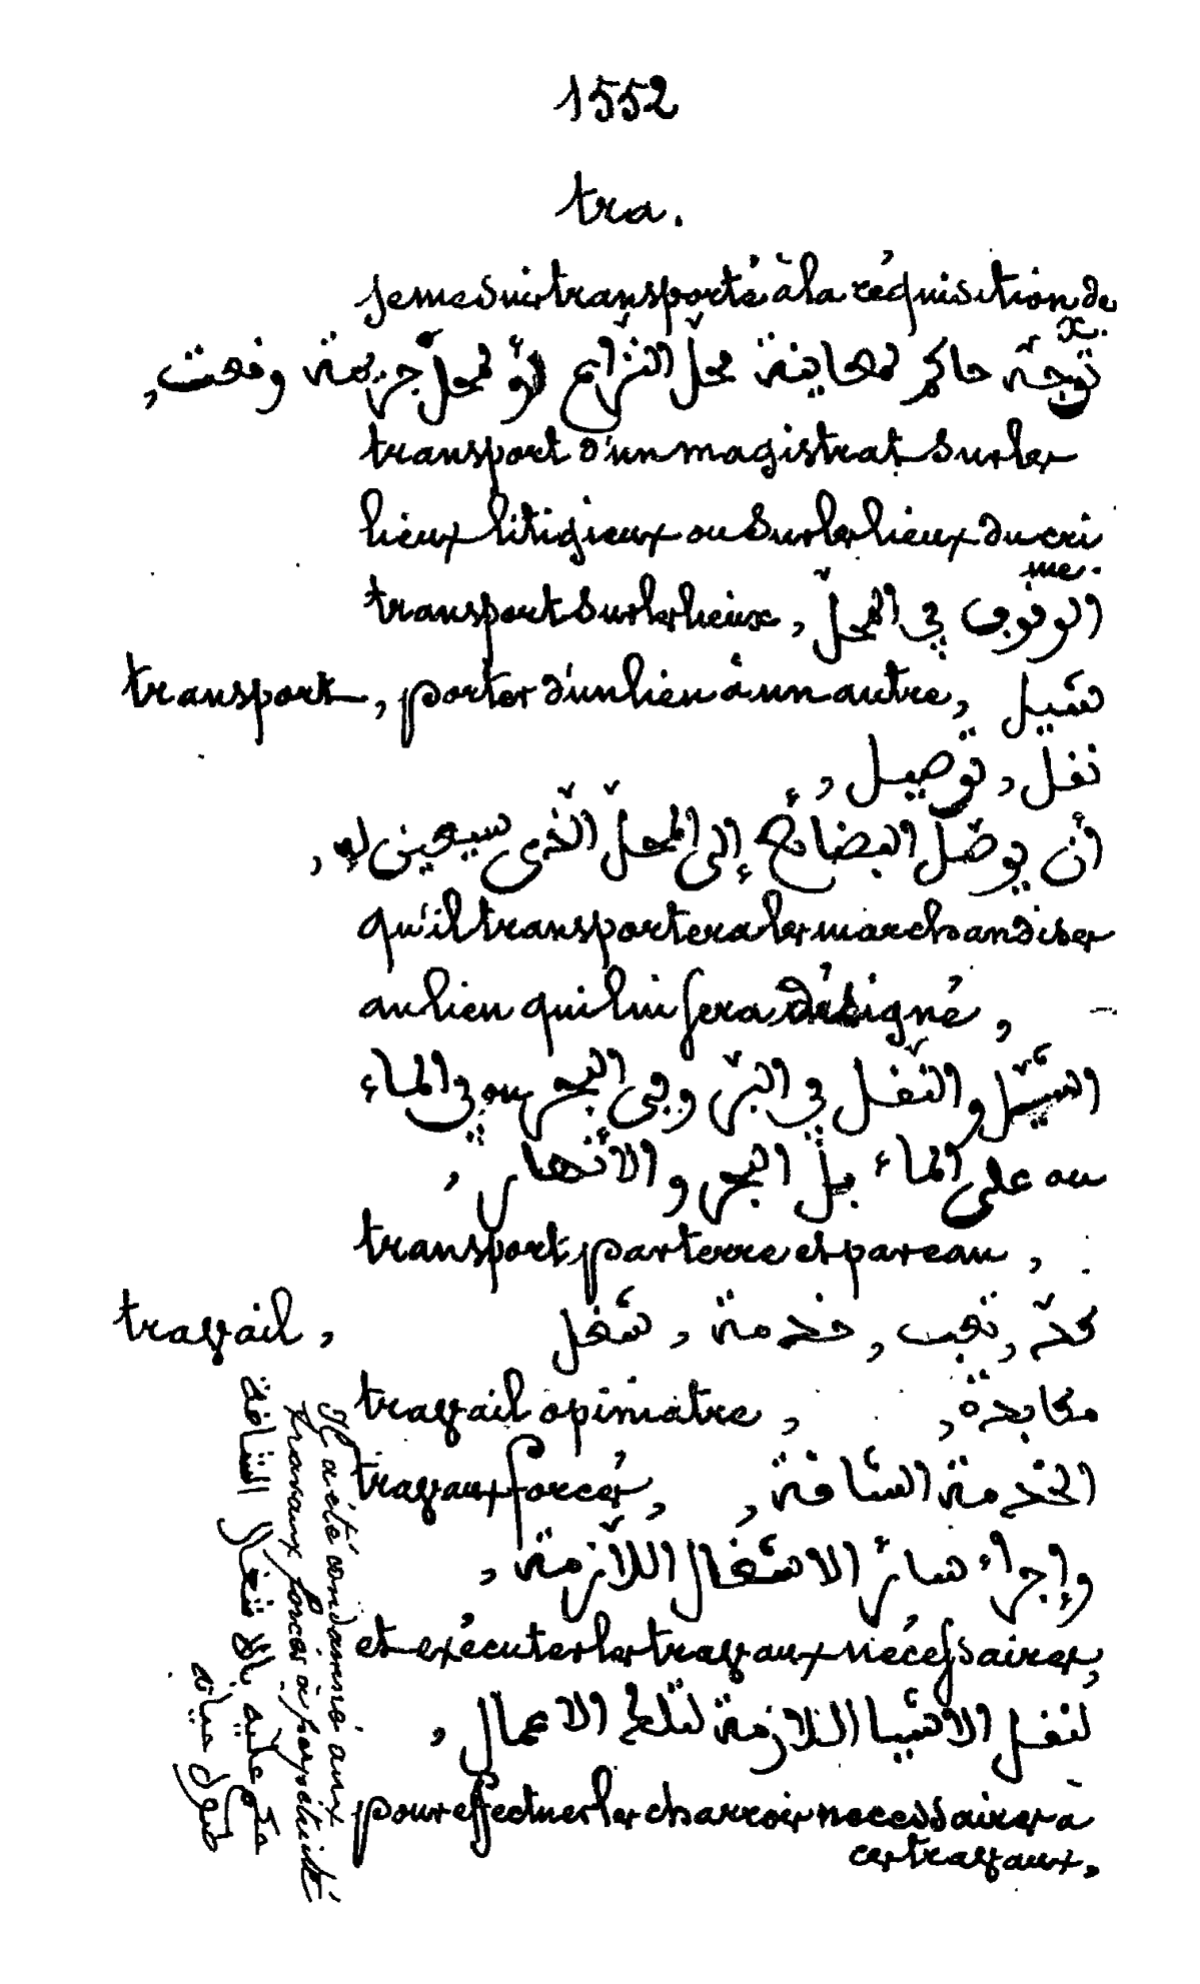 1552
tra.
je me suis transporté à la réquisition de
x.
توجّه حاكم لمعاينة محلّ النزاع أو لمحلّ جريمة وقعت,
transport d'un magistrat sur les
lieux litigieux ou sur les lieux du cri
me.
transport sur les lieux, الوقوف في المحلّ
transport, porter d'un lieu à un autre, شيل
نقل, توصيل,
أن يوصّل البضائع إلى المحلّ الّذى سيعين له,
qu'il transportera les marchandises
au lieu qui lui sera désigné,
الشيل والنّقل في البرّ وفى البحر ou في الماء
ou على الماء بل البحر و الأنهار,
transport par terre et par eau,
travail, كدّ, تعب, خدمة, شغل
travail opiniatre, مكابدة,
travaux forcés, الخدمة الشاقة,
وإجراء سائر الاشغال اللاّزمة,
et exécuter les travaux nécessaires,
لنقل الاشيا اللازمة لتلك الاعمال,
pour effectuer les charrois necessaires a
ces travaux.
Il a été condamné aux
travaux forcés à perpétuité
حكم عليه بالاشغال الشاقة
طول حياته